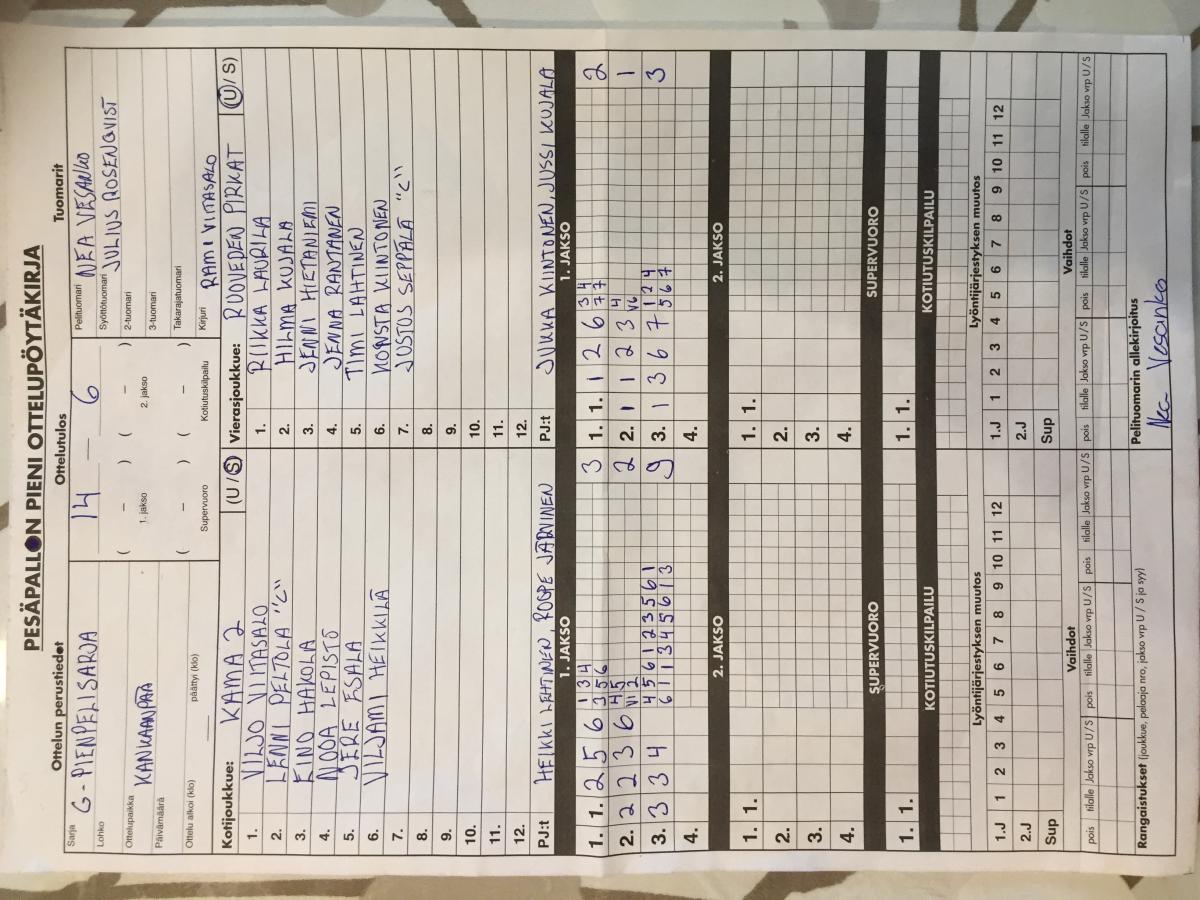 PESÄPALLON PIENI OTTELUPÖYTÄKIRJA
Ottelun perustiedot
Sarja G-PIENPELISARJA
Lohko
Ottelupaikka KANKAANPÄÄ
Päivämäärä
Ottelu alkoi (klo) päättyi (klo)
Ottelutulos
14 – 6
( – ) ( – )
1. jakso 2. jakso
( – ) ( – )
Supervuoro Kotiutuskilpailu
Tuomarit
Pelituomari NEA VESANKO
Syöttötuomari JULIUS ROSENQVIST
2-tuomari
3-tuomari
Takarajatuomari
Kirjuri RAMI VIITASALO
Kotijoukkue: KAMA 2 (U / S)
1. VILJO VIITASALO
2. LENNI PELTOLA "C"
3. EINO HAKOLA
4. NOOA LEPISTÖ
5. JERE ESALA
6. VILJAMI HEIKKILÄ
7.
8.
9.
10.
11.
12.
PJ:t HEIKKI LEHTINEN, ROOPE JÄRVINEN
Vierasjoukkue: RUOVEDEN PIRKAT (U / S)
1. RIIKKA LAURILA
2. HILMA KUJALA
3. JENNI HIETANIEMI
4. JENNA RANTANEN
5. TIMI LAHTINEN
6. KONSTA KIINTONEN
7. JUSTUS SEPPÄLÄ "C"
8.
9.
10.
11.
12.
PJ:t JUKKA KIINTONEN, JUSSI KUJALA
1. JAKSO
1. 1. 2 5 6 1 3 4 3
3 5 6
2. 2 2 3 6 4 5 2
V1 2
3. 3 3 4 4 5 6 1 2 3 5 6 1 9
6 1 1 3 4 5 6 1 3
4.
1. JAKSO
1. 1. 1 2 6 3 4 2
7 7
2. 1 1 2 3 4 1
V6
3. 1 3 6 7 1 2 4 3
5 6 7
4.
2. JAKSO
1. 1.
2.
3.
4.
2. JAKSO
1. 1.
2.
3.
4.
SUPERVUORO
1. 1.
SUPERVUORO
1. 1.
KOTIUTUSKILPAILU
KOTIUTUSKILPAILU
Lyöntijärjestyksen muutos
1.J 1 2 3 4 5 6 7 8 9 10 11 12
2.J
Sup
Lyöntijärjestyksen muutos
1.J 1 2 3 4 5 6 7 8 9 10 11 12
2.J
Sup
Vaihdot
pois tilalle Jakso vrp U/S pois tilalle Jakso vrp U/S pois tilalle Jakso vrp U/S
Vaihdot
pois tilalle Jakso vrp U/S pois tilalle Jakso vrp U/S pois tilalle Jakso vrp U/S
Rangaistukset (joukkue, pelaaja nro, jakso vrp U / S ja syy)
Pelituomarin allekirjoitus
Nea Vesanko